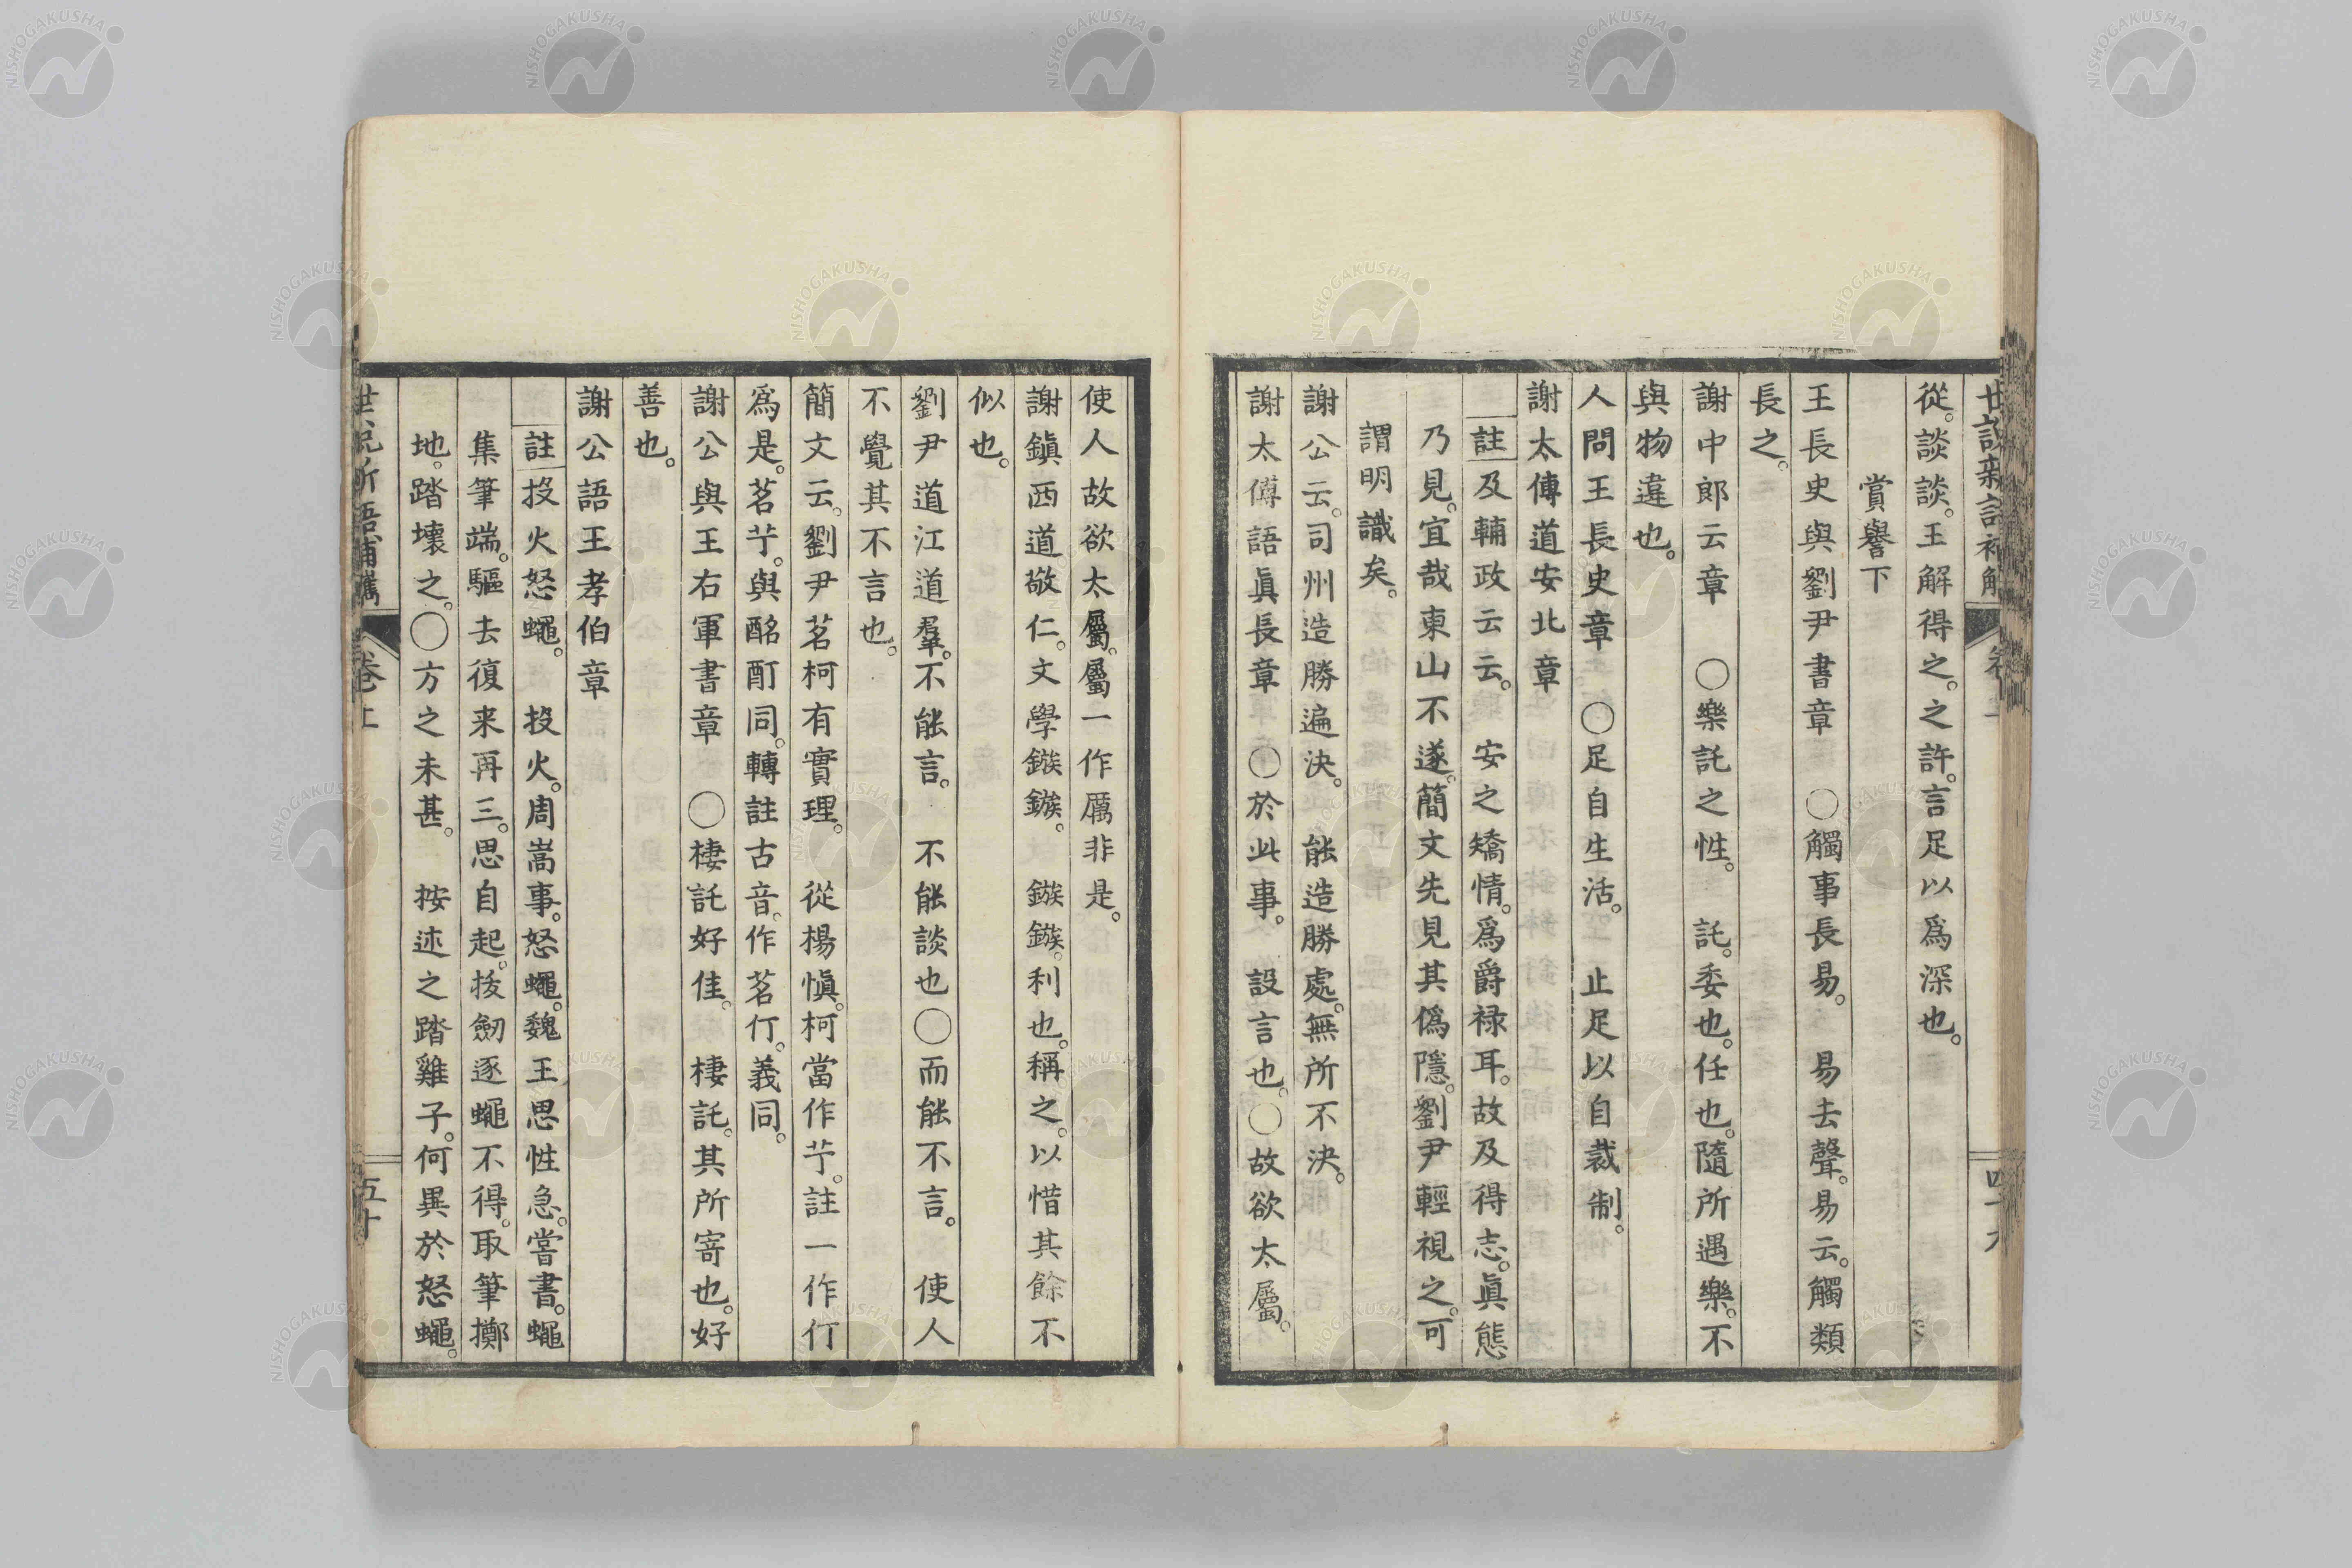 從。談談。王解得之。之許。言足以爲深也。
賞譽下
王長史與劉尹書章 〇觸事長易。 易去聲。易云。觸類
長之。
謝中郎云章 〇樂託之性。 託。委也。任也。隨所遇樂。不
與物違也。
人問王長史章 〇足自生活。 止足以自裁制。
謝太傅道安北章
註及輔政云云。 安之矯情。爲爵祿耳。故及得志。眞態
乃見。宜哉東山不遂。簡文先見其僞隱。劉尹輕視之。可
謂明識矣。
謝公云。司州造勝遍決。 能造勝處。無所不決。
謝太傅語眞長章 〇於此事。 設言也。〇故欲太屬。
使人故欲太屬。屬一作厲非是。
謝鎭西道敬仁。文學鏃鏃。 鏃鏃。利也。稱之。以惜其餘不
似也。
劉尹道江道羣。不能言。 不能談也〇而能不言。 使人
不覺其不言也。
簡文云。劉尹茗柯有實理。 從楊愼。柯當作艼。註一作仃
爲是。茗艼。與酩酊同。轉註古音。作茗仃。義同。
謝公與王右軍書章 〇棲託好佳。 棲託。其所寄也。好
善也。
謝公語王孝伯章
註投火怒蠅。 投火。周嵩事。怒蠅。魏王思性急。嘗書。蠅
集筆端。驅去復来再三。思自起。拔劒逐蠅不得。取筆擲
地。踏壞之。〇方之未甚。 按述之踏雞子。何異於怒蠅。
卷上
五十
NISHOGAKUSHA